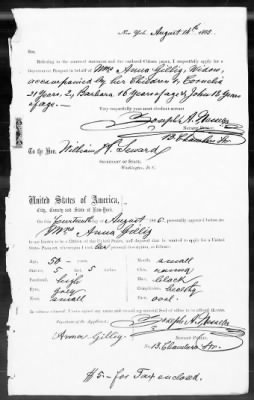 New York August 14th 1865.
Sir,
Referring to the annexed statement and the enclosed Citizen papers, I respectfully apply for a
Department Passport in behalf of Mrs Anna Gillig, Widow,
accompanied by her Children 1, Cornelia
21 Years, 2, Barbara 16 Years of age & John 12 Years
of age.—
Very respectfully your most obedient servant
Joseph A. 
NOTARY PUBLIC,
13. Chambers Str.
To the Hon. William H. Seward
SECRETARY OF STATE,
Washington, D. C.
United States of America,
City, County and State of New-York.
On Fourteenth of August 1865, personally appeared before me
Mrs Anna Gillig
to me known to be a Citizen of the United States, and deposed that he wanted to apply for a United
States Passport, whereof her personal description is as follows:
Age, 50— years Mouth, small
Stature, 5 feet 5 inches Chin, 
Forehead, high Hair, black
Eyes, grey Complexion, healthy
Nose, small Face, oval.
In witness whereof I have hereunto set my hand and official seal.
Signature of the Applicant, Joseph A. 
Anna Gillig Notary Public,
No. 13. Chambers Str.
$5— for Tax enclosed.